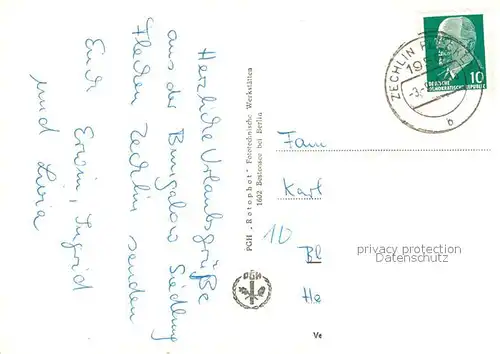 Herzliche Urlaubsgrüße
aus der Bungalow Siedlung
Flecken Zechlin senden
Euch Erwin, Ingrid
und Livia
PGH „Rotophot“ Fototechnische Werkstätten
1602 Bestensee bei Berlin
PGH
ZECHLIN
b
10
DEUTSCHE
DEMOKRATISCHE REPUBLIK
Fam
Karl
10
Bl
He
Ve
privacy protection
Datenschutz